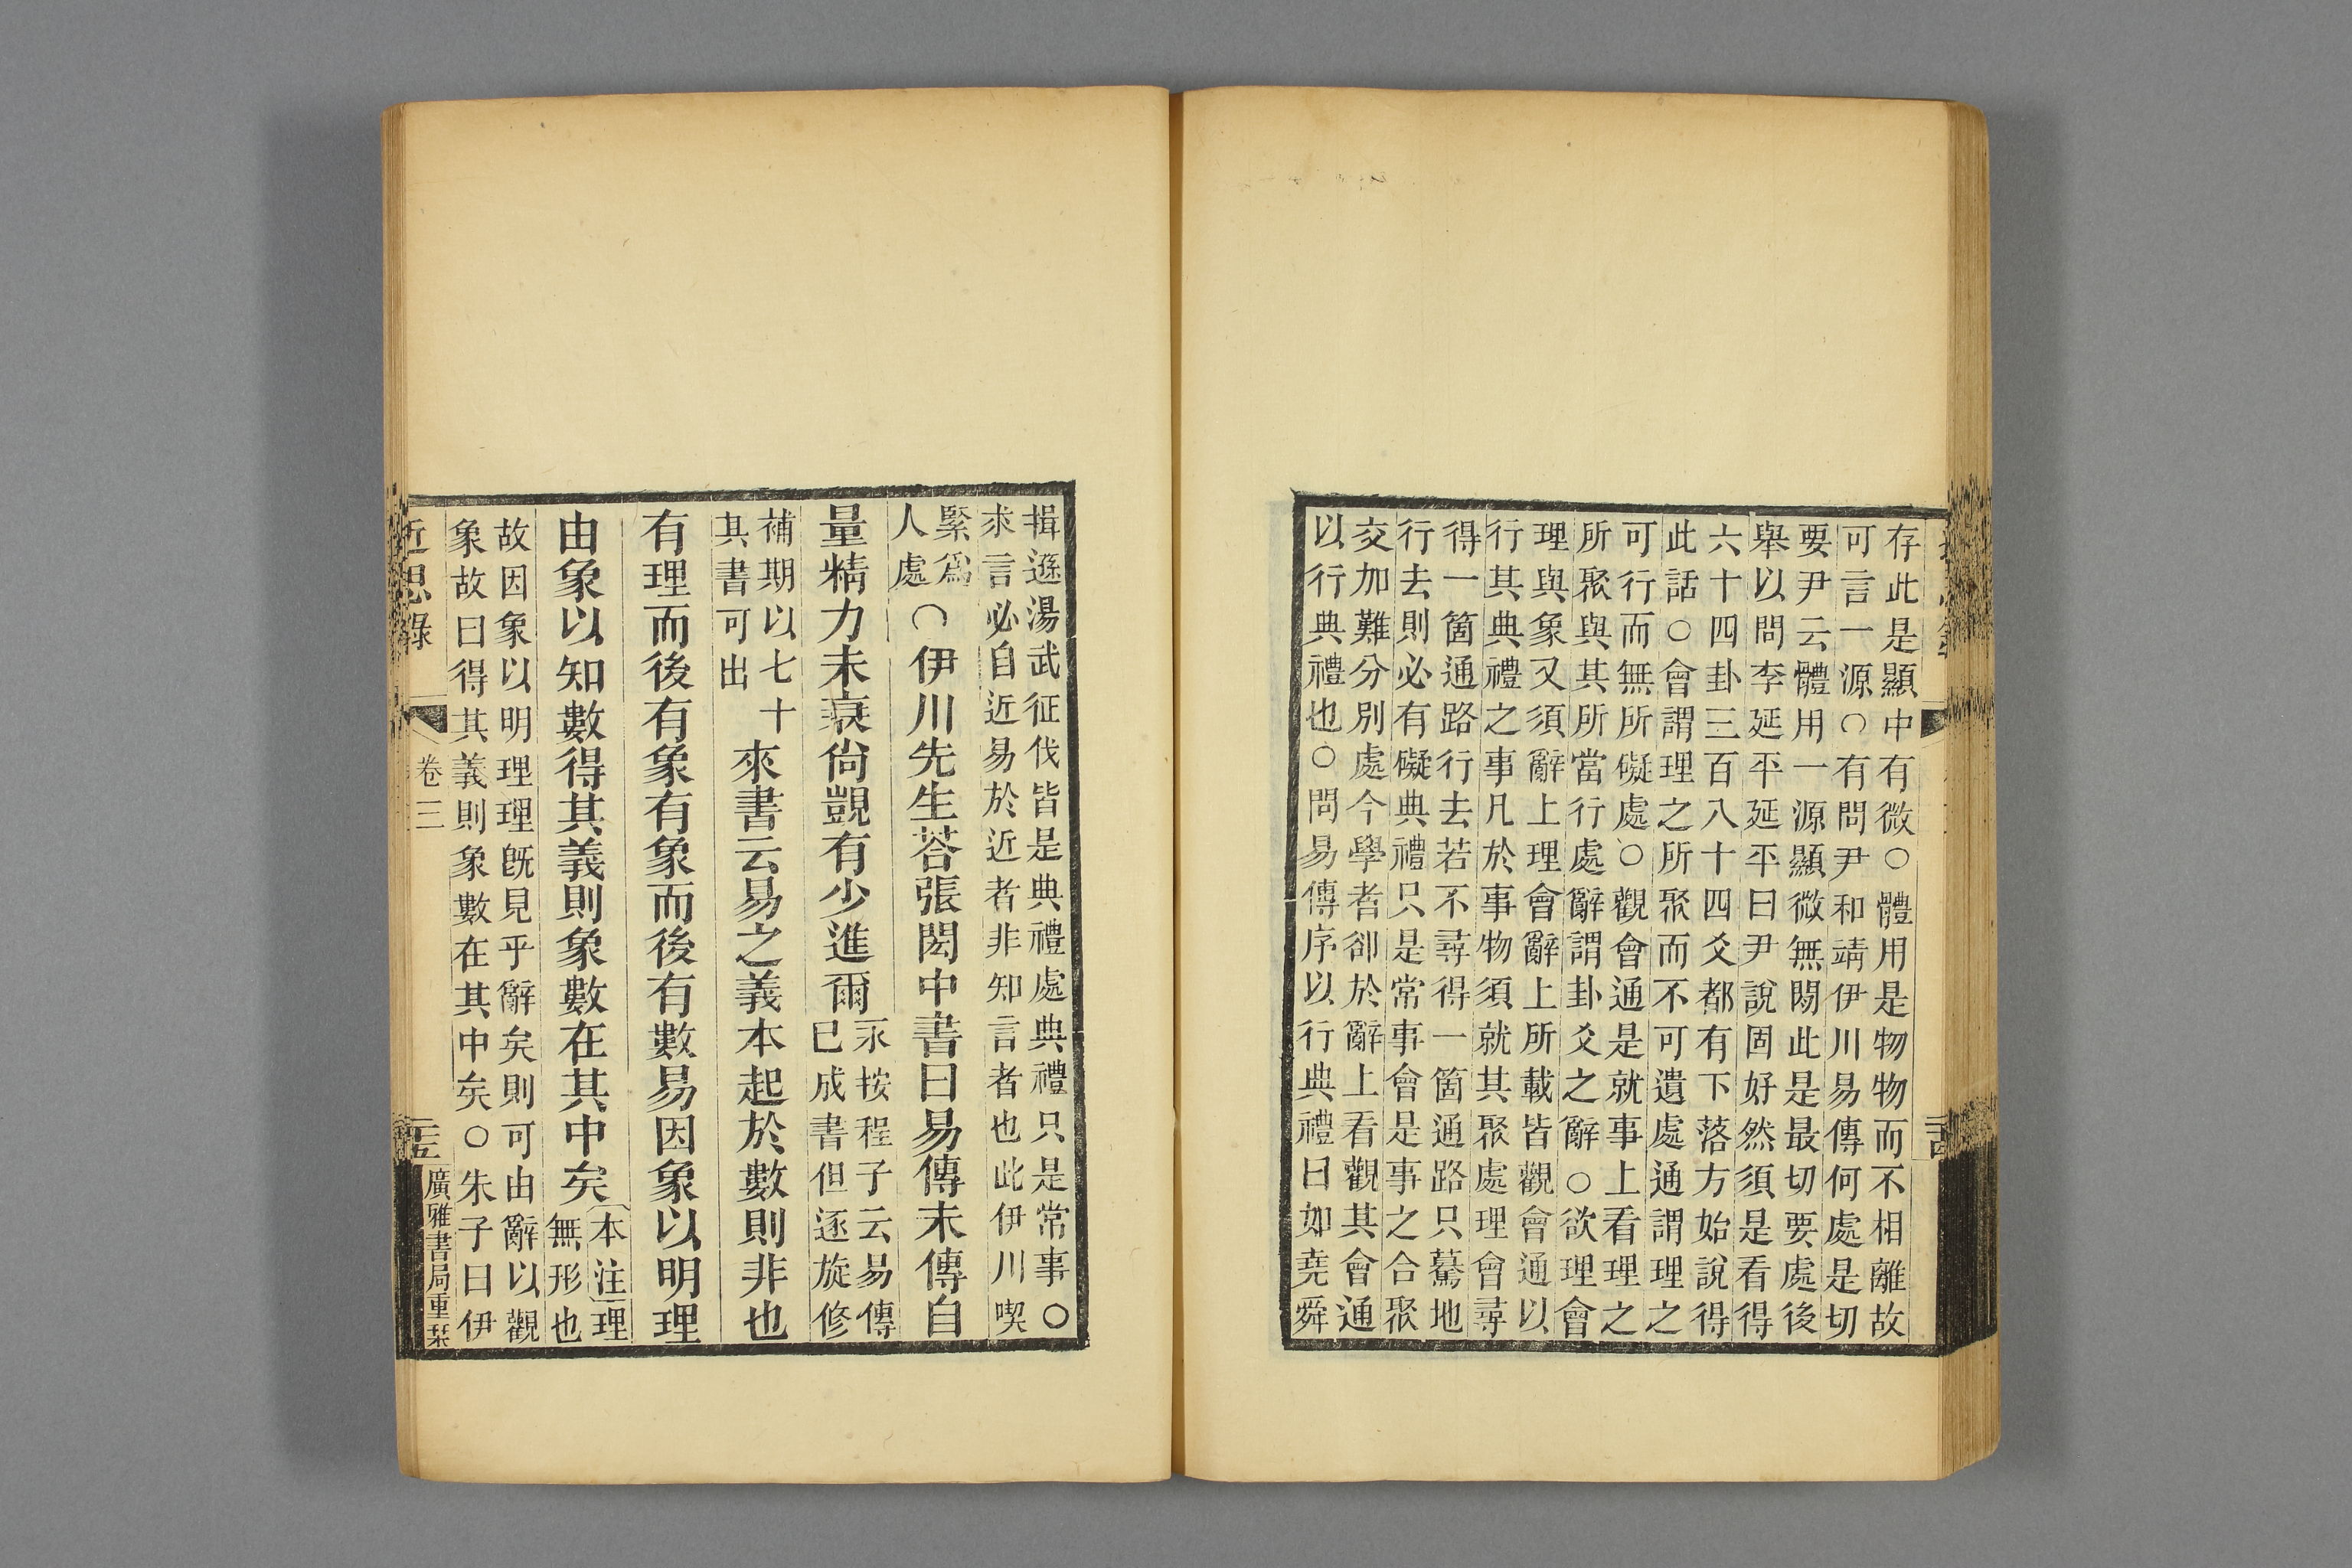 存此是顯中有微○體用是物物而不相離故
可言一源○有問尹和靖伊川易傳何處是切
要尹云體用一源顯微無閒此是最切要處後
舉以問李延平延平曰尹說固好然須是看得
六十四卦三百八十四爻都有下落方始說得
此話○會謂理之所聚而不可遺處通謂理之
可行而無所礙處○觀會通是就事上看理之
所聚與其所當行處辭謂卦爻之辭○欲理會
理與象又須辭上理會辭上所載皆觀會通以
行其典禮之事凡於事物須就其聚處理會尋
得一箇通路行去若不尋得一箇通路只驀地
行去則必有礙典禮只是常事會是事之合聚
交加難分別處今學者卻於辭上看觀其會通
以行典禮也○問易傳序以行典禮曰如堯舜
揖遜湯武征伐皆是典禮處典禮只是常事○
求言必自近易於近者非知言者也此伊川喫
緊爲
人處
○伊川先生荅張閎中書曰易傳未傳自
量精力未衰尙覬有少進爾
永按程子云易傳
已成書但逐旋修
補期以七十
其書可出
來書云易之義本起於數則非也
有理而後有象有象而後有數易因象以明理
由象以知數得其義則象數在其中矣
本注理
無形也
故因象以明理理旣見乎辭矣則可由辭以觀
象故曰得其義則象數在其中矣○朱子曰伊
近思錄
卷三
二十五
廣雅書局重栞